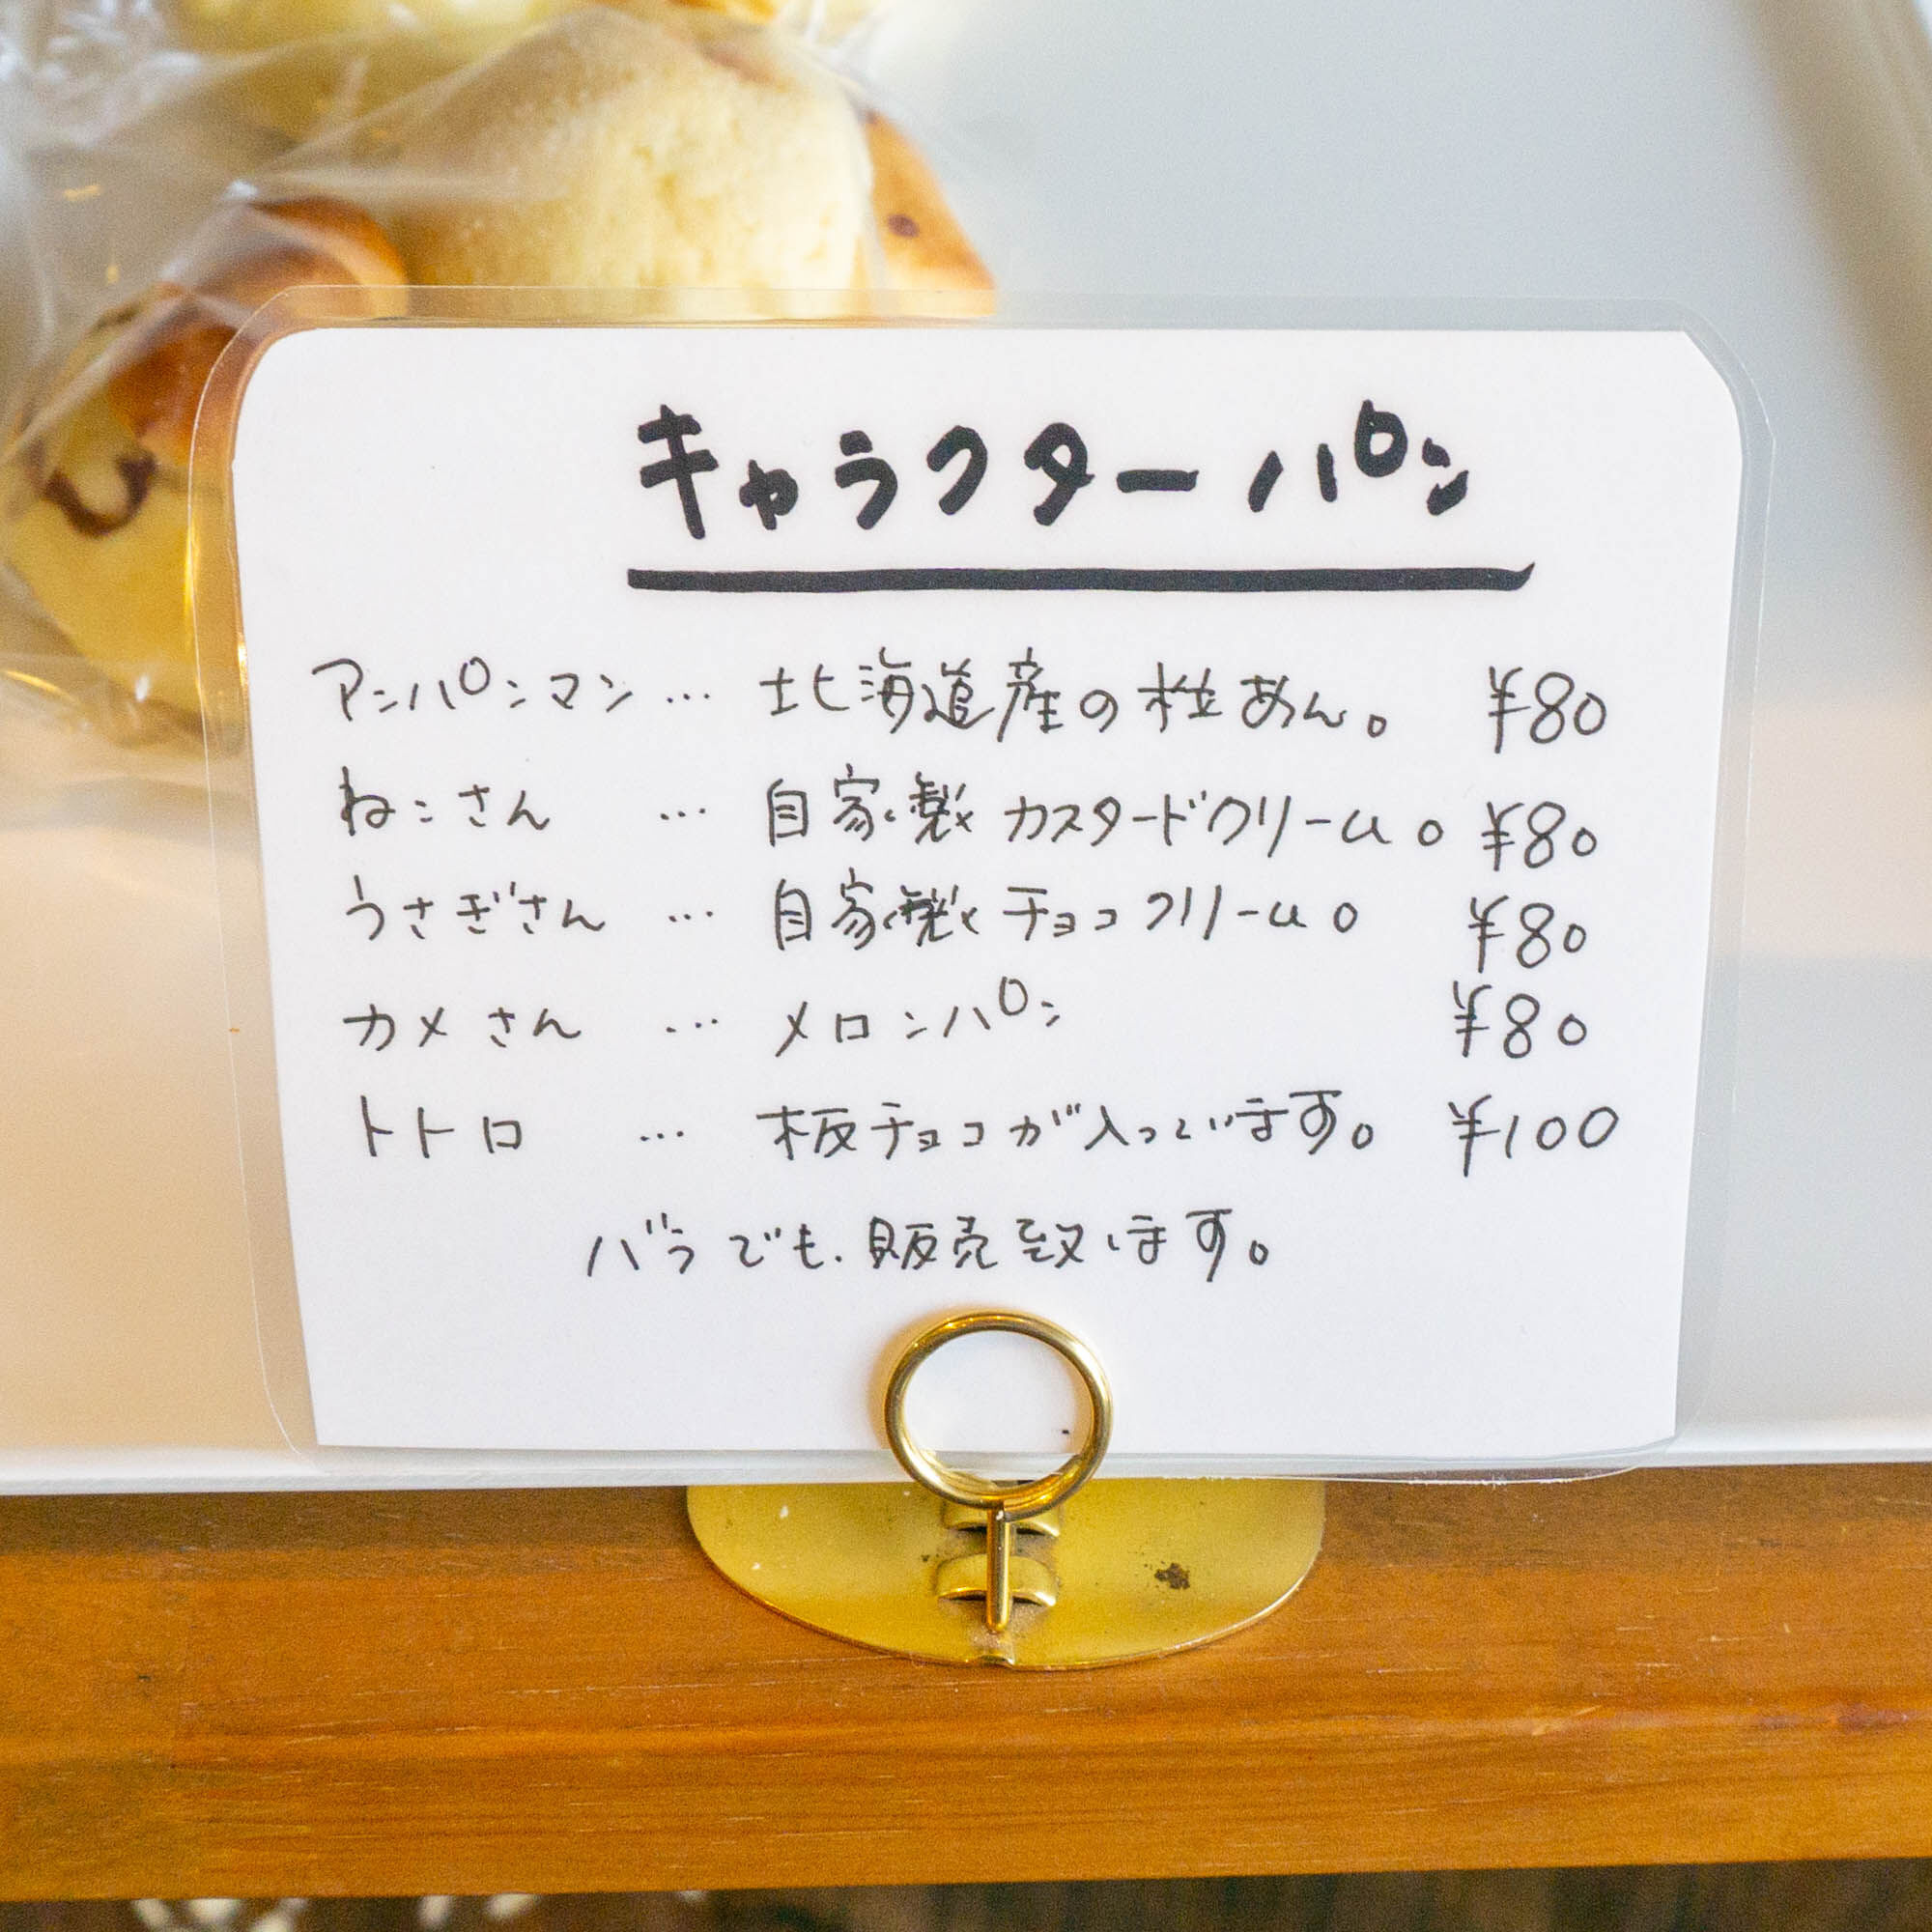 キャラクターパン
アンパンマン … 北海道産の粒あん。 ¥80
ねこさん … 自家製カスタードクリーム。 ¥80
うさぎさん … 自家製チョコクリーム。 ¥80
カメさん … メロンパン ¥80
トトロ … 板チョコが入っています。 ¥100
バラでも販売致します。